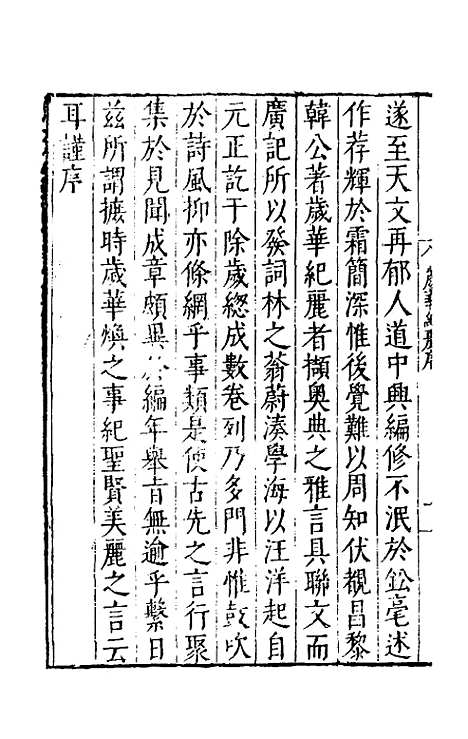 歲華紀麗序
遂至天文再郁人道中興編修不泯於鈆毫述
作荐輝於霜簡深惟後覺難以周知伏覩昌黎
韓公著歲華紀麗者擷奥典之雅言具聯文而
廣記所以發詞林之蓊蔚湊學海以汪洋起自
元正訖于除歲緫成數卷列乃多門非惟鼓吹
於詩風抑亦條綱乎事類是使古先之言行聚
集於見聞成章頗異編年舉旹無逾乎繫日
兹所謂摭時歲華煥之事紀聖賢美麗之言云
耳謹序